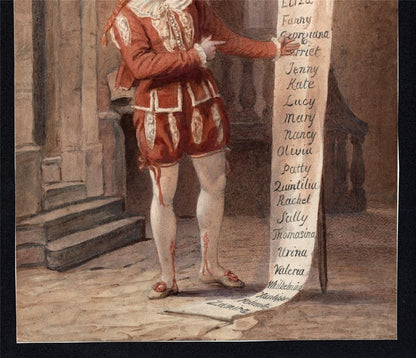 Eliza
Fanny
Georgiana
Harriet
Jenny
Kate
Lucy
Mary
Nancy
Olivia
Patty
Quintilia
Rachel
Sally
Thomasina
Urina
Valeria
Wilhelmina
Zamora